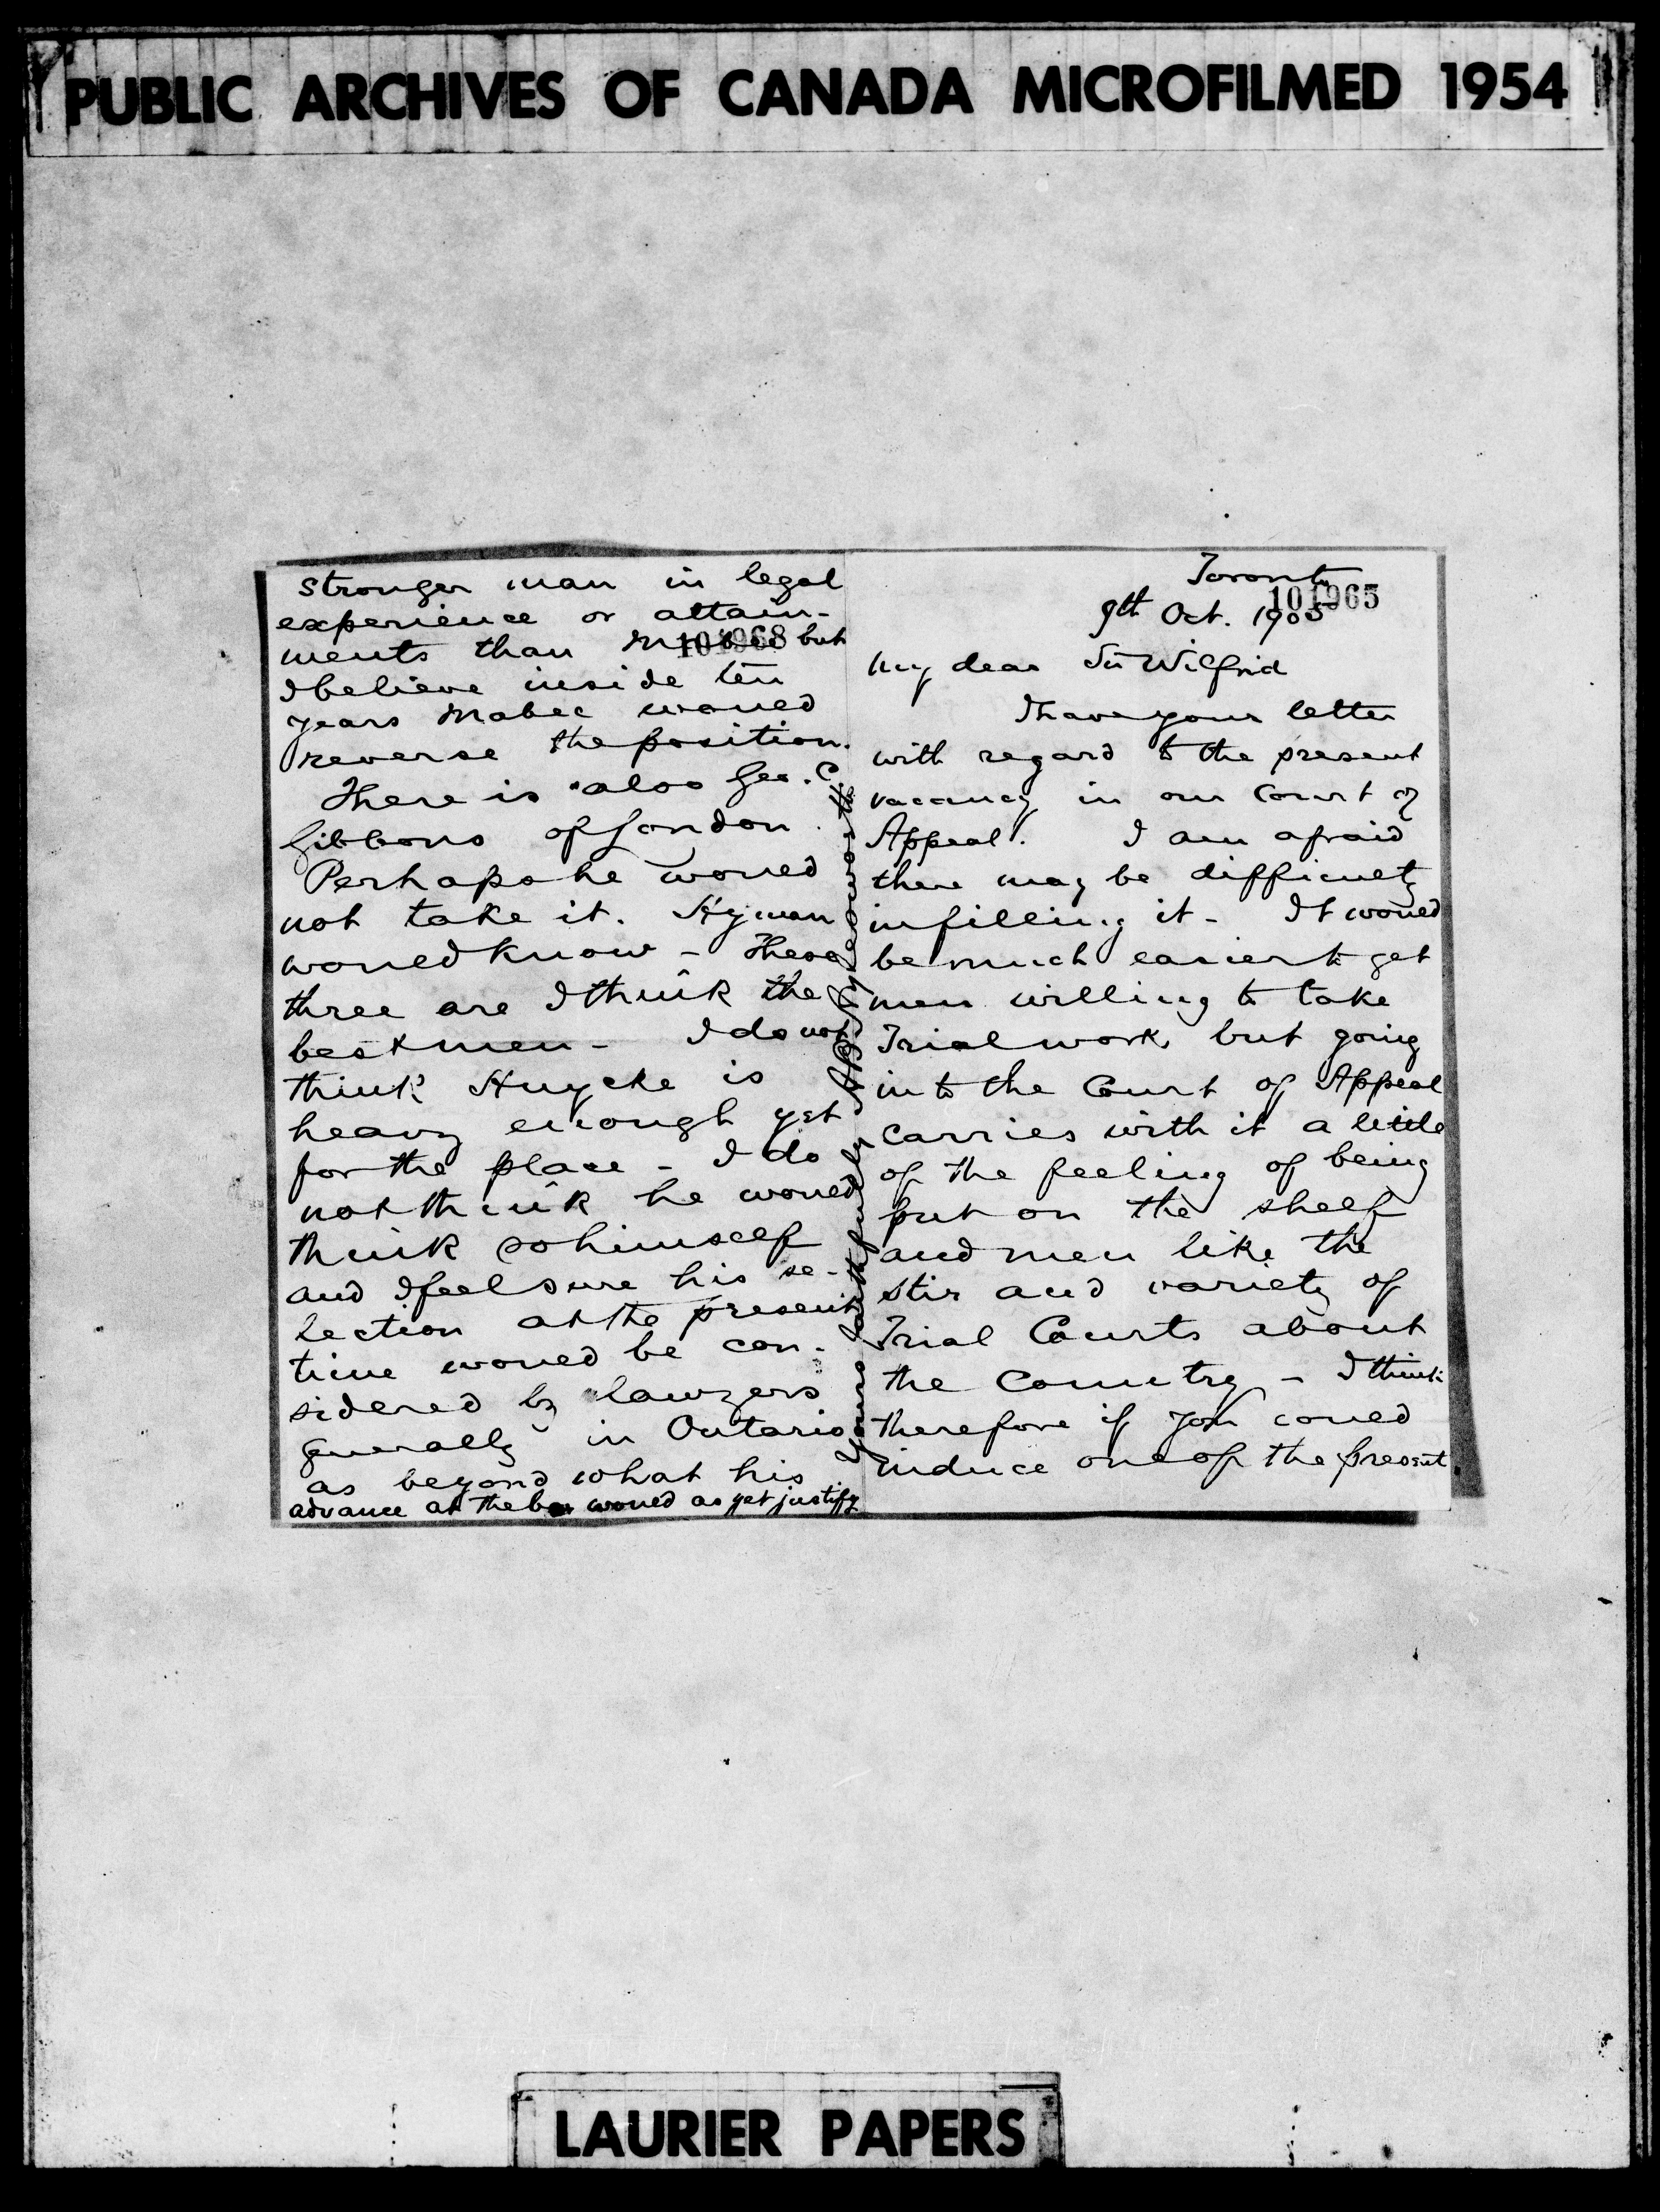 PUBLIC ARCHIVES OF CANADA MICROFILMED 1954
Toronto
101965
9th Oct. 1905
My dear Sir Wilfrid
I have your letter
with regard to the present
vacancy in our Court of
Appeal. I am afraid
there may be difficulty
in filling it - It would
be much easier to get
men willing to take
Trial work, but going
into the Court of Appeal
carries with it a little
of the feeling of being
put on the shelf
and men like the
stir and variety of
Trial Courts about
the Country - I think
therefore if you could
induce one of the present
stronger man in legal
experience or attain-
ments than Mabee but
101968
I believe inside ten
years Mabee would
reverse the position.
There is also Geo. C.
Gibbons of London.
Perhaps he would
not take it. Hyman
would know - These
three are I think the
best men - I do not
think Huycke is
heavy enough yet
for the place - I do
not think he would
think so himself
and I feel sure his se-
lection at the present
time would be con-
sidered by lawyers
generally in Ontario
as beyond what his
advance at the bar would as yet justify
Yours faithfully AB Aylesworth
LAURIER PAPERS